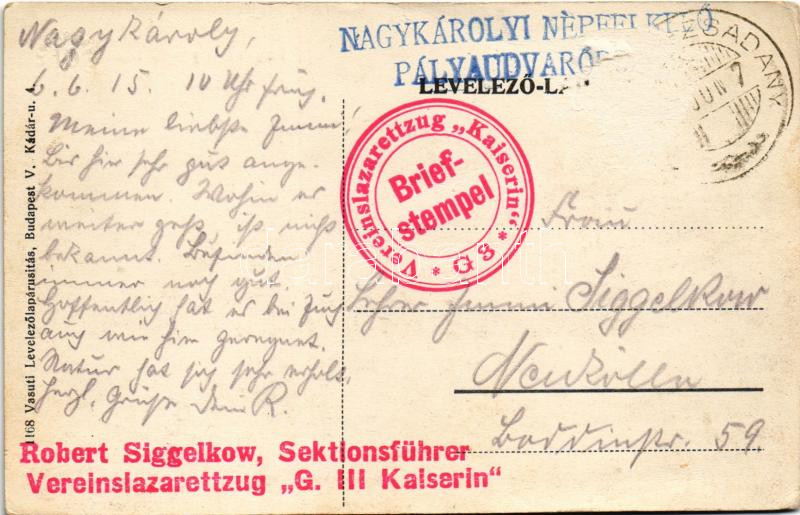 Nagykároly,
6.6.15. 10 Uhr früh.
Meine liebste Emmi!
Bis hier sehr gut ange-
kommen. Wohin es
weiter geht, ist nicht
bekannt. Befinden
immer noch gut.
Hoffentlich hat es bei Euch
auch wie hier geregnet.
Natur hat sich sehr erholt.
Herzl. Grüße Dein R.
NAGYKÁROLYI NÉPFELKELŐ
PÁLYAUDVARŐR
LEVELEZŐ-LA
JUN 7
Vereinslazarettzug „Kaiserin“
* G 3 *
Brief-
stempel
Frau
Lehrer Emmi Siggelkow
Neukölln
Boddinstr. 59.
1168 Vasuti Levelezőlapárusitás, Budapest V. Kádár-u. 4.
Robert Siggelkow, Sektionsführer
Vereinslazarettzug „G. III Kaiserin“